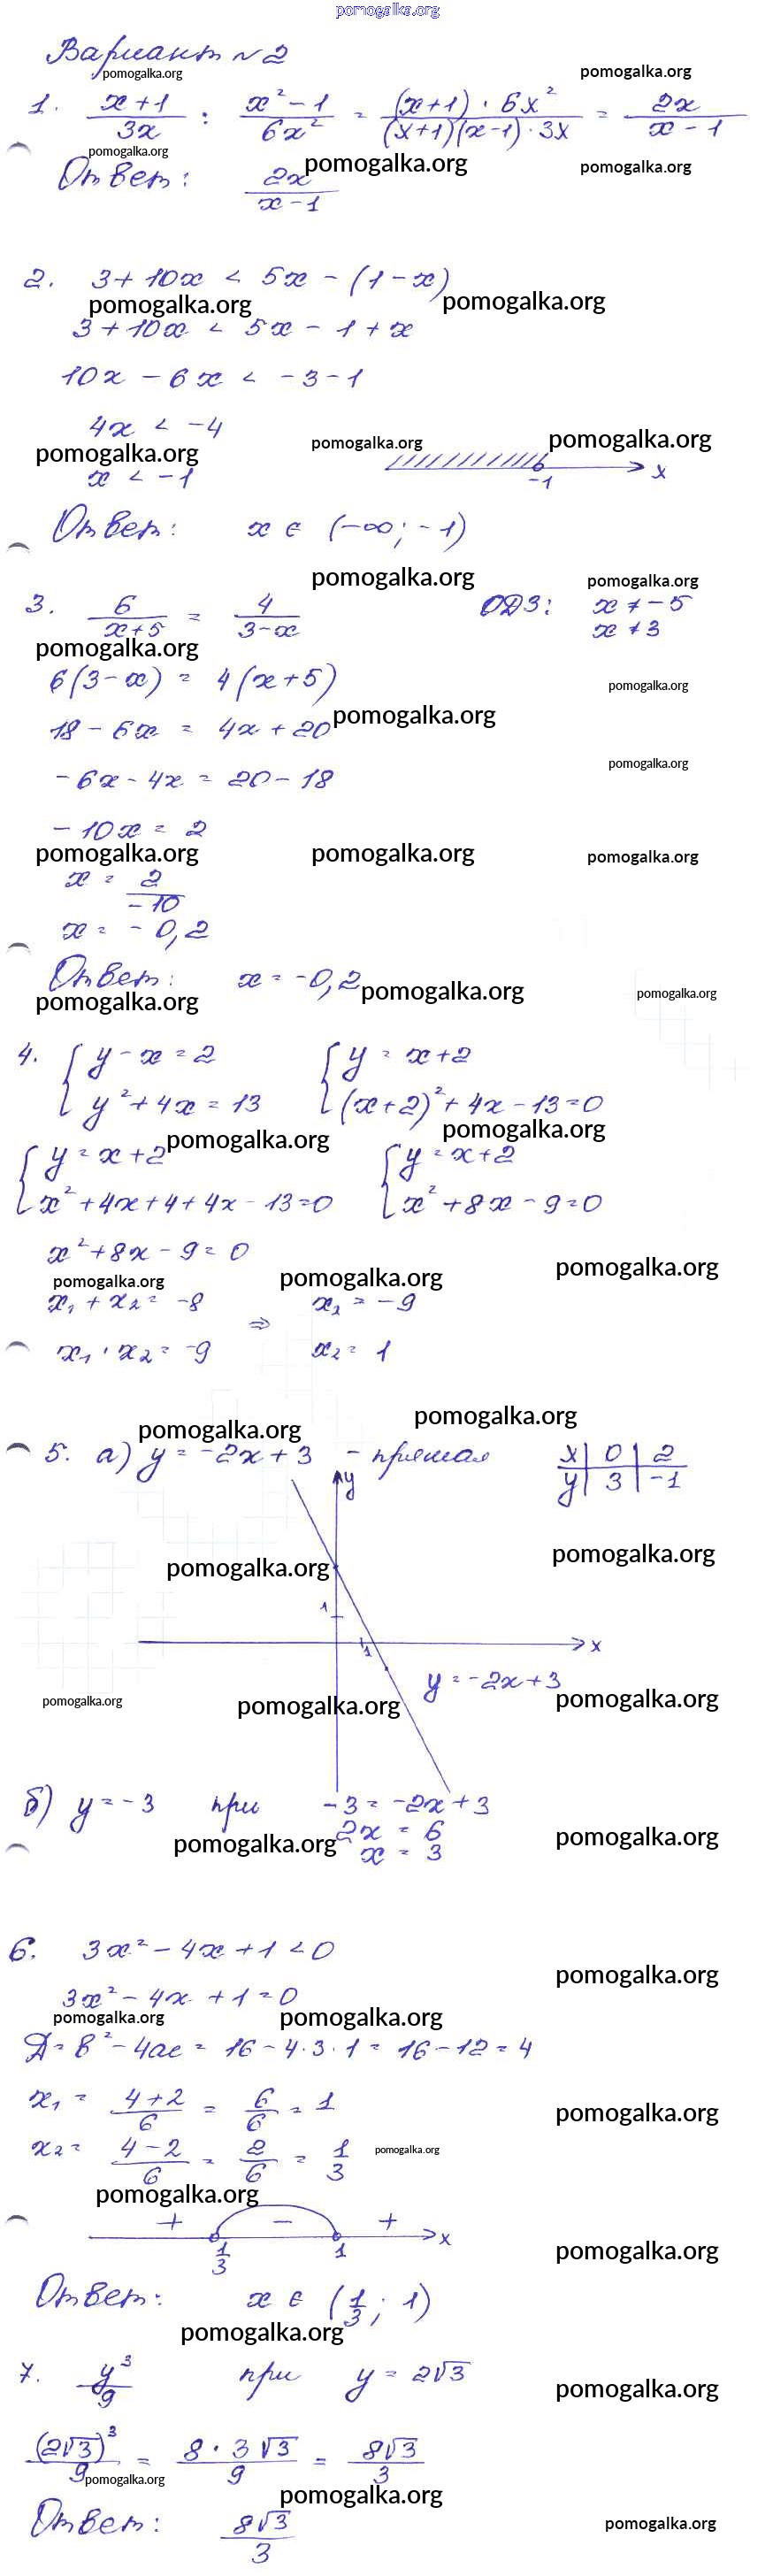 pomogalka.org
Вариант №2
pomogalka.org pomogalka.org
1. (x+1)/(3x) : (x²-1)/(6x²) = ((x+1)·6x²)/((x+1)(x-1)·3x) = (2x)/(x-1)
pomogalka.org pomogalka.org pomogalka.org
Ответ: (2x)/(x-1)
2. 3+10x < 5x-(1-x)
pomogalka.org pomogalka.org
3+10x < 5x-1+x
10x-6x < -3-1
4x < -4
pomogalka.org pomogalka.org pomogalka.org
x < -1
-1 x
Ответ: x ∈ (-∞; -1)
pomogalka.org pomogalka.org
3. 6/(x+5) = 4/(3-x) ОДЗ: x≠-5
x≠3
pomogalka.org
6(3-x) = 4(x+5) pomogalka.org
18-6x = 4x+20 pomogalka.org
-6x-4x = 20-18 pomogalka.org
-10x = 2
pomogalka.org pomogalka.org pomogalka.org
x = 2/(-10)
x = -0,2
Ответ: x = -0,2 pomogalka.org pomogalka.org
pomogalka.org
4. { y-x=2 { y=x+2
y²+4x=13 (x+2)²+4x-13=0
pomogalka.org pomogalka.org
{ y=x+2 { y=x+2
x²+4x+4+4x-13=0 x²+8x-9=0
x²+8x-9=0
pomogalka.org pomogalka.org pomogalka.org
x₁+x₂=-8 ⇒ x₂=-9
x₁·x₂=-9 x₂=1
pomogalka.org pomogalka.org
5. а) y=-2x+3 - прямая x | 0 | 2
y | 3 | -1
y
pomogalka.org pomogalka.org
1
1 x
y=-2x+3
pomogalka.org pomogalka.org pomogalka.org
б) y=-3 при -3=-2x+3
2x = 6
pomogalka.org pomogalka.org
x = 3
6. 3x²-4x+1<0
pomogalka.org
3x²-4x+1=0
pomogalka.org pomogalka.org
Д=в²-4ас = 16-4·3·1 = 16-12=4
x₁ = (4+2)/6 = 6/6 = 1
pomogalka.org
x₂= (4-2)/6 = 2/6 = 1/3 pomogalka.org
pomogalka.org
+ - +
1/3 1 x
pomogalka.org
Ответ: x ∈ (1/3; 1)
pomogalka.org
7. y³/9 при y=2√3
pomogalka.org
(2√3)³/9 = (8·3√3)/9 = (8√3)/3
pomogalka.org pomogalka.org
Ответ: (8√3)/3 pomogalka.org